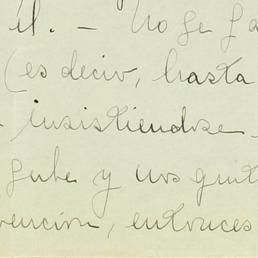 él. – No se ga
(es decir, hasta
insistiendose
sube y nos quit
vención, entonces